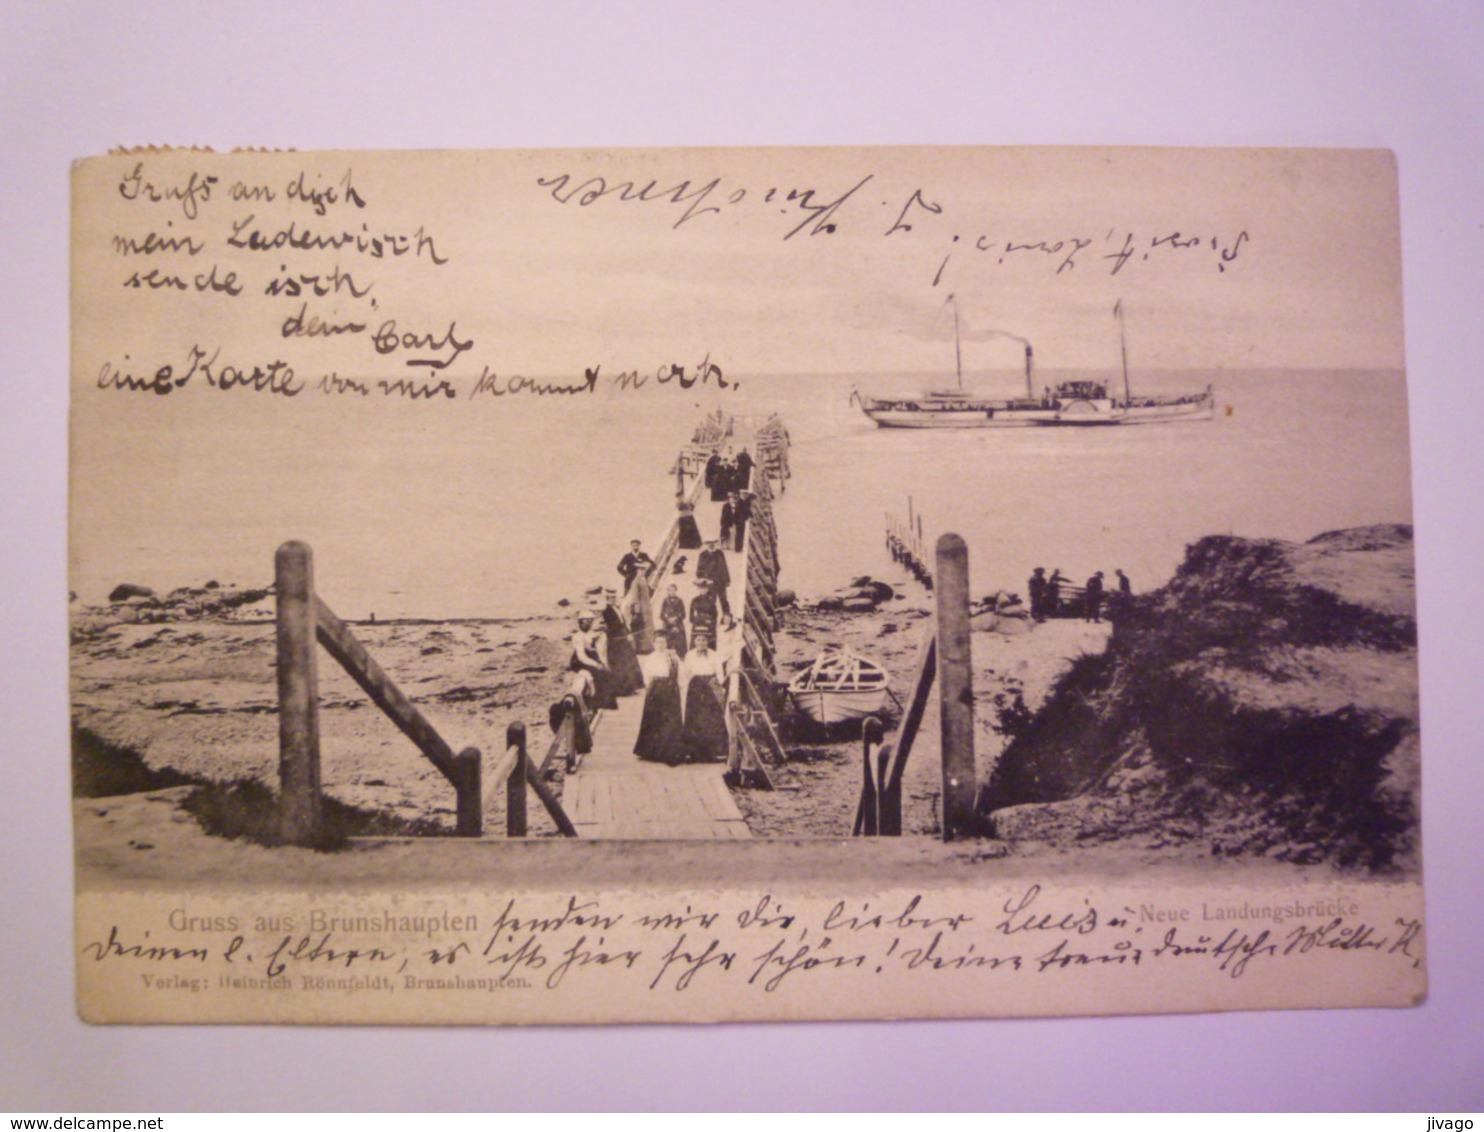 Gruss an disch
mein Ludewisch
sende isch.
dein Carl
eine Karte von mir kommt noch.
Prosit, Louis!
Gruss aus Brunshaupten senden wir Dir, lieber Luis u. Neue Landungsbrücke
Deinen l. Eltern, es ist hier sehr schön! Deine treue deutsche Mutter K.
Verlag: Heinrich Rönnfeldt, Brunshaupten.
www.delcampe.net
jivago